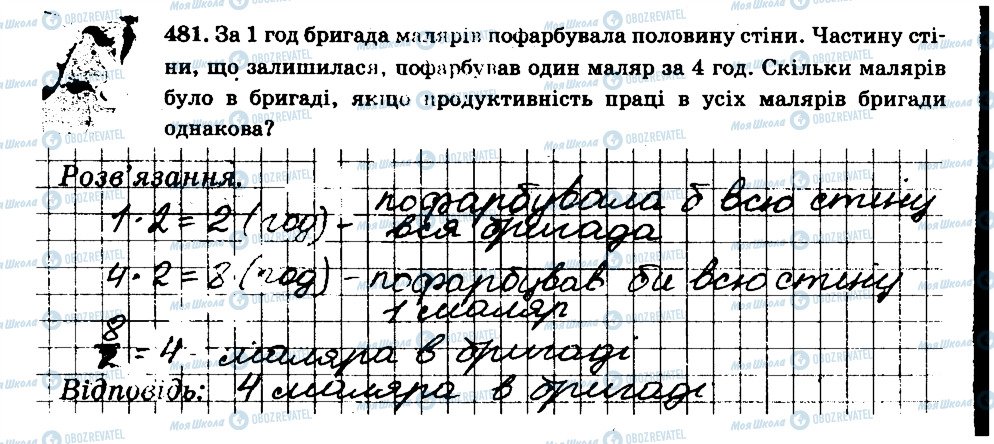 481. За 1 год бригада малярів пофарбувала половину стіни. Частину сті-
ни, що залишилася, пофарбував один маляр за 4 год. Скільки малярів
було в бригаді, якщо продуктивність праці в усіх малярів бригади
однакова?
Розв'язання.
1·2=2 (год) - пофарбувала б всю стіну
вся бригада
4·2=8 (год) - пофарбував би всю стіну
1 маляр
8/2 = 4 - маляра в бригаді
Відповідь: 4 маляра в бригаді